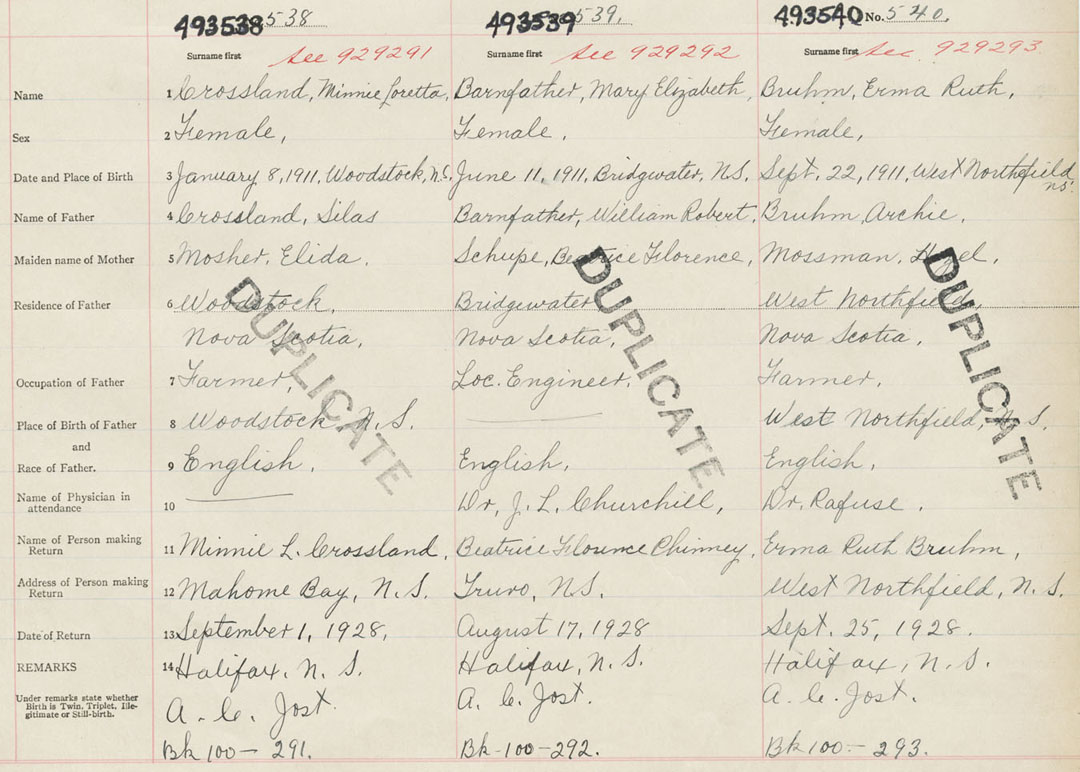 493538 538 493539 539, 493540 No. 540,
Surname first See 929291 Surname first See 929292 Surname first See 929293
Name 1 Crossland, Minnie Loretta, Barnfather, Mary Elizabeth, Bruhm, Erma Ruth,
Sex 2 Female, Female, Female,
Date and Place of Birth 3 January 8, 1911, Woodstock, N.S. June 11, 1911, Bridgwater, N.S. Sept. 22, 1911, West Northfield N.S.
Name of Father 4 Crossland, Silas Barnfather, William Robert, Bruhm, Archie,
Maiden name of Mother 5 Mosher, Elida. Schupe, Beatrice Florence, Mossman,
Residence of Father 6 Woodstock, Bridgewater West Northfield
Nova Scotia, Nova Scotia, Nova Scotia,
Occupation of Father 7 Farmer, Loc. Engineer, Farmer,
Place of Birth of Father 8 Woodstock N.S. West Northfield, N.S.
and
Race of Father. 9 English. English, English,
Name of Physician in attendance 10 Dr. J. L. Churchill, Dr. Rafuse.
Name of Person making Return 11 Minnie L. Crossland, Beatrice Florence Erma Ruth Bruhm,
Address of Person making Return 12 Mahome Bay, N.S. Truro, N.S. West Northfield, N.S.
Date of Return 13 September 1, 1928, August 17, 1928 Sept. 25, 1928.
REMARKS 14 Halifax, N.S. Halifax, N.S. Halifax, N.S.
Under remarks state whether Birth is Twin, Triplet, Illegitimate or Still-birth. A. C. Jost. A. C. Jost. A. C. Jost.
Bk 100 - 291. Bk - 100 - 292. Bk 100 - 293.
DUPLICATE DUPLICATE DUPLICATE